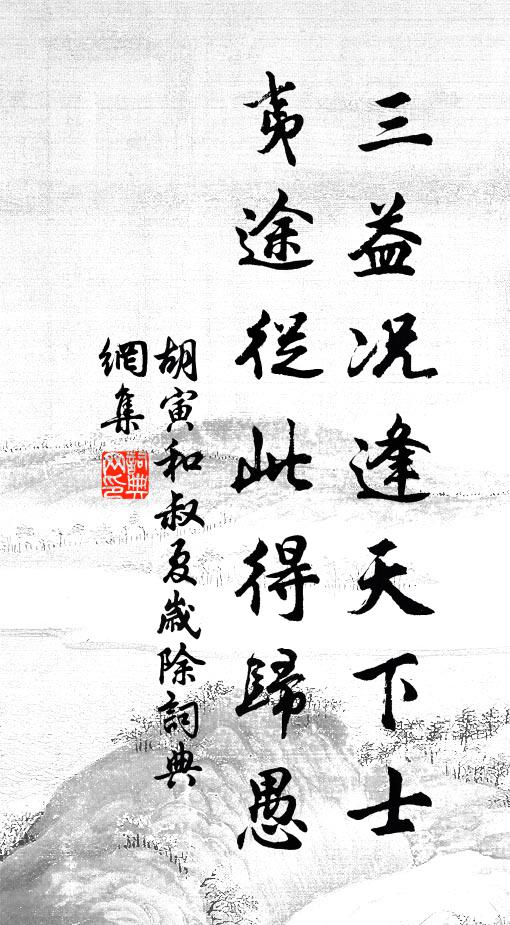 三益況逢天下士
夷途從此得歸愚
胡寅和叔夏歲除詞典
網集
詞典